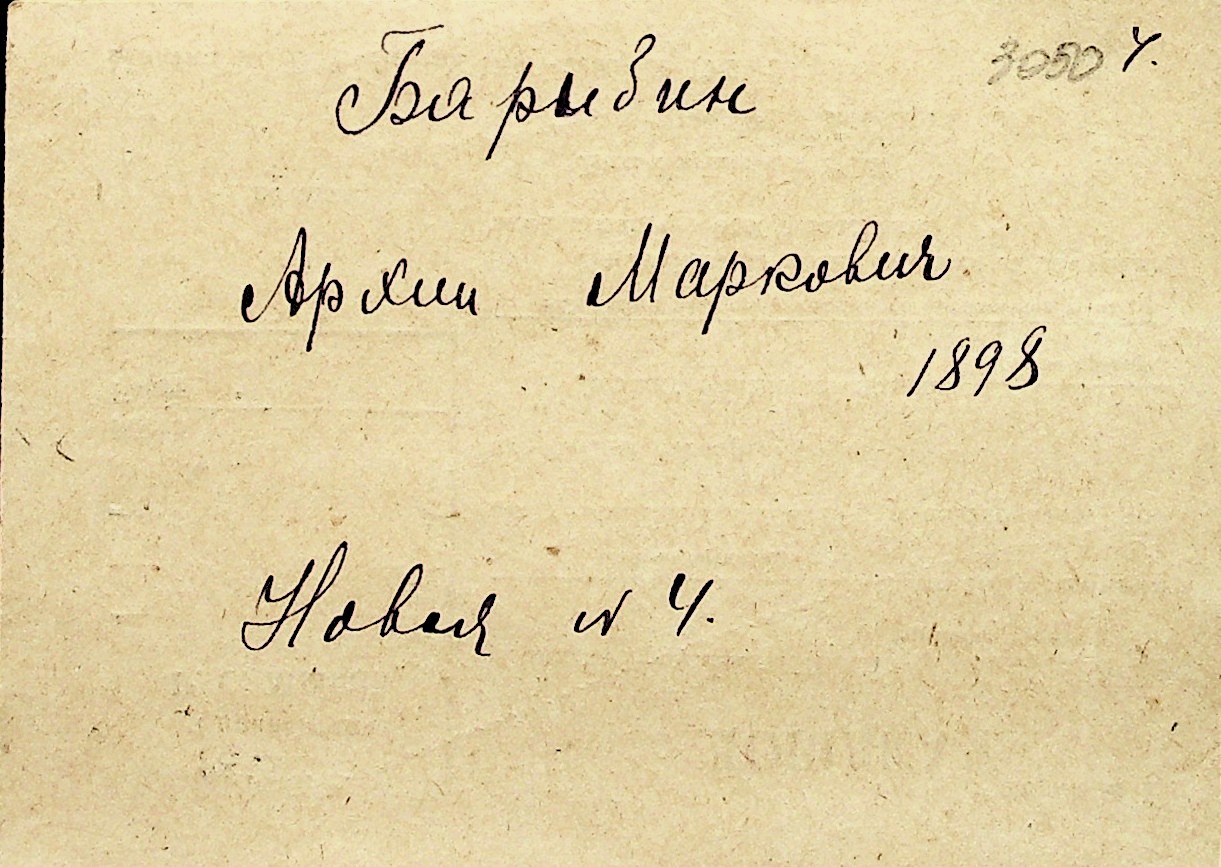 3050 4.
Барыбин
Архип Маркович
1898
Новая № 4.